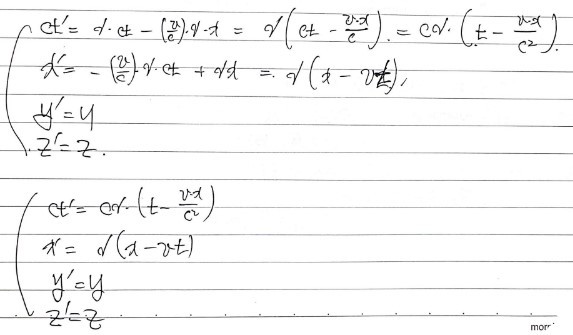 ct' = γ·ct − (v/c)·γ·x = γ(ct − v·x/c). = cγ·(t − v·x/c²).
x' = −(v/c)·γ·ct + γx = γ(x − vt),
y' = y
z' = z.
ct' = cγ·(t − v·x/c²)
x = γ(x − vt)
y' = y
z' = z
mor